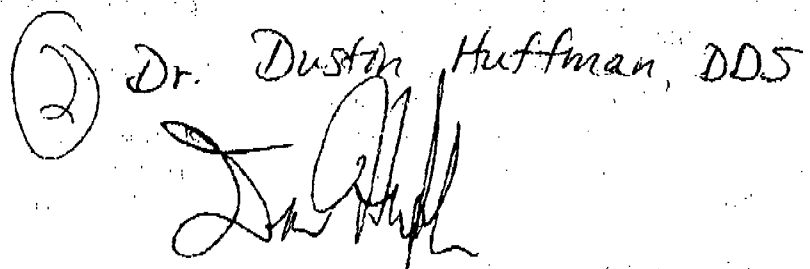 2 Dr. Dustin Huffman, DDS